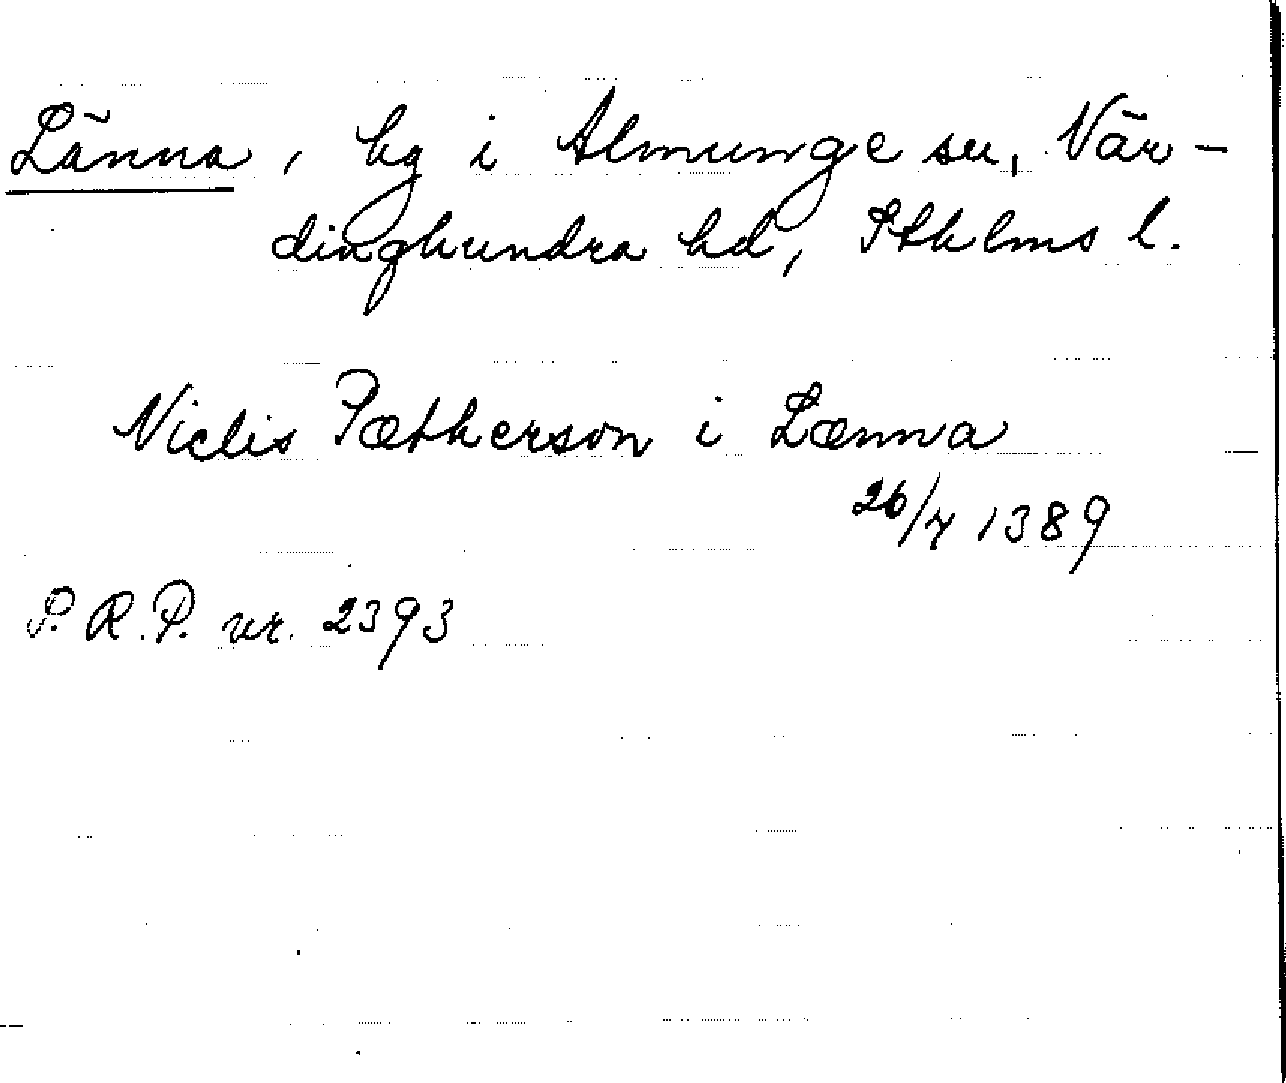 Länna, by i Almunge sn, När-
dinghundra hd, Sthlms l.
Niclis Pætherson i Lænna
26/7 1389
S.R.P. nr. 2393